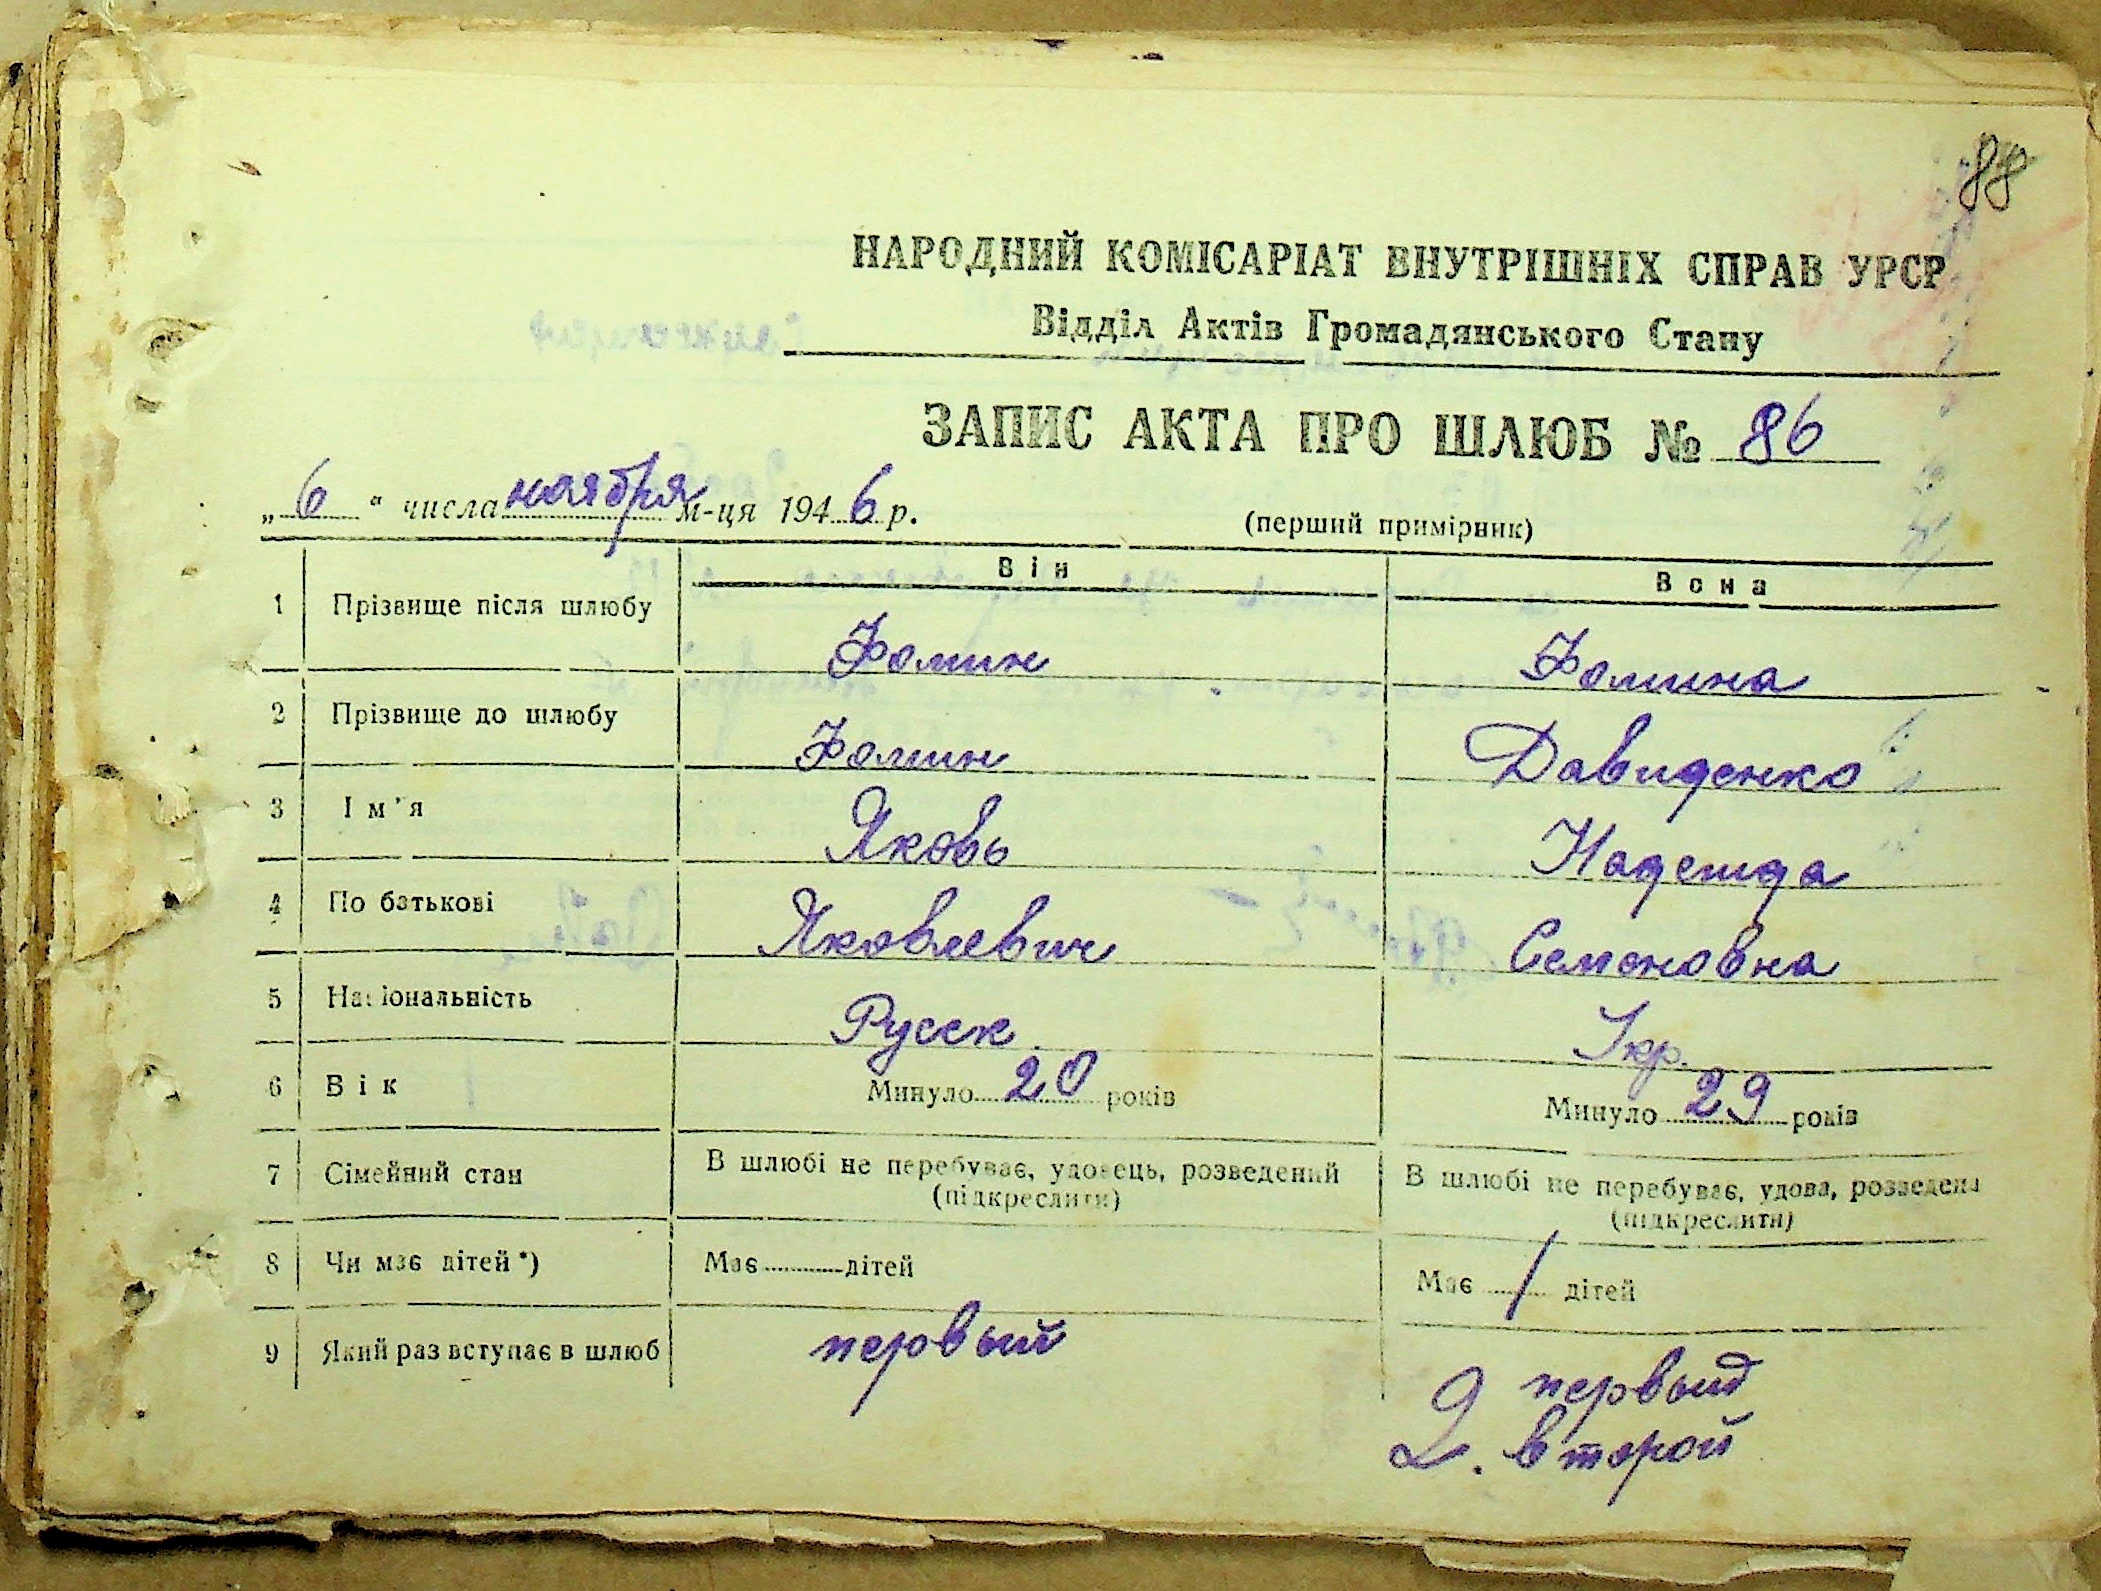 88
НАРОДНИЙ КОМІСАРІАТ ВНУТРІШНІХ СПРАВ УРСР
Відділ Актів Громадянського Стану
ЗАПИС АКТА ПРО ШЛЮБ № 86
„ 6 “ числа ноября м-ця 1946 р.
(перший примірник)
Він Вона
1 Прізвище після шлюбу Фомин Фомина
2 Прізвище до шлюбу Фомин Давиденко
3 Ім'я Яковь Надежда
4 По батькові Яковлевич Семеновна
5 Національність Русск. Укр.
6 Вік Минуло 20 років Минуло 29 років
7 Сімейний стан В шлюбі не перебуває, удовець, розведений (підкреслити) В шлюбі не перебуває, удова, розведена (підкреслити)
8 Чи має дітей *) Має дітей Має 1 дітей
9 Який раз вступає в шлюб первый первый
2. второй